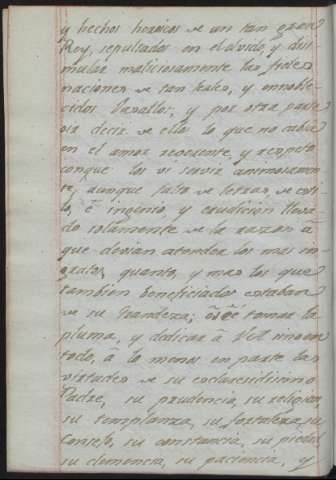 y hechos heroicos de un tan gran
Rey, sepultados en el olvido, y disi
mular maliciosamente las
naciones de tan leales, y ennoble
cidos Vasallos; y por otra parte
oia decir de ellos lo que no cabia
en el amor reverente y respeto
conque los vi servir animosamen
te; aunque falto de letras de esti
lo, é ingenio, y erudicion lleva
do solamente de la razon á
que devian atender los mas in
gratos, quanto, y mas los que
tambien beneficiados estaban
de su Grandeza; osé tomar la
pluma, y dedicar á VM sino en
todo, á lo menos en parte las
virtudes de su esclarecidisimo
Padre, su prudencia, su religion,
su templanza, su fortaleza, su
Consejo, su constancia, su piedad,
su clemencia, su paciencia, y